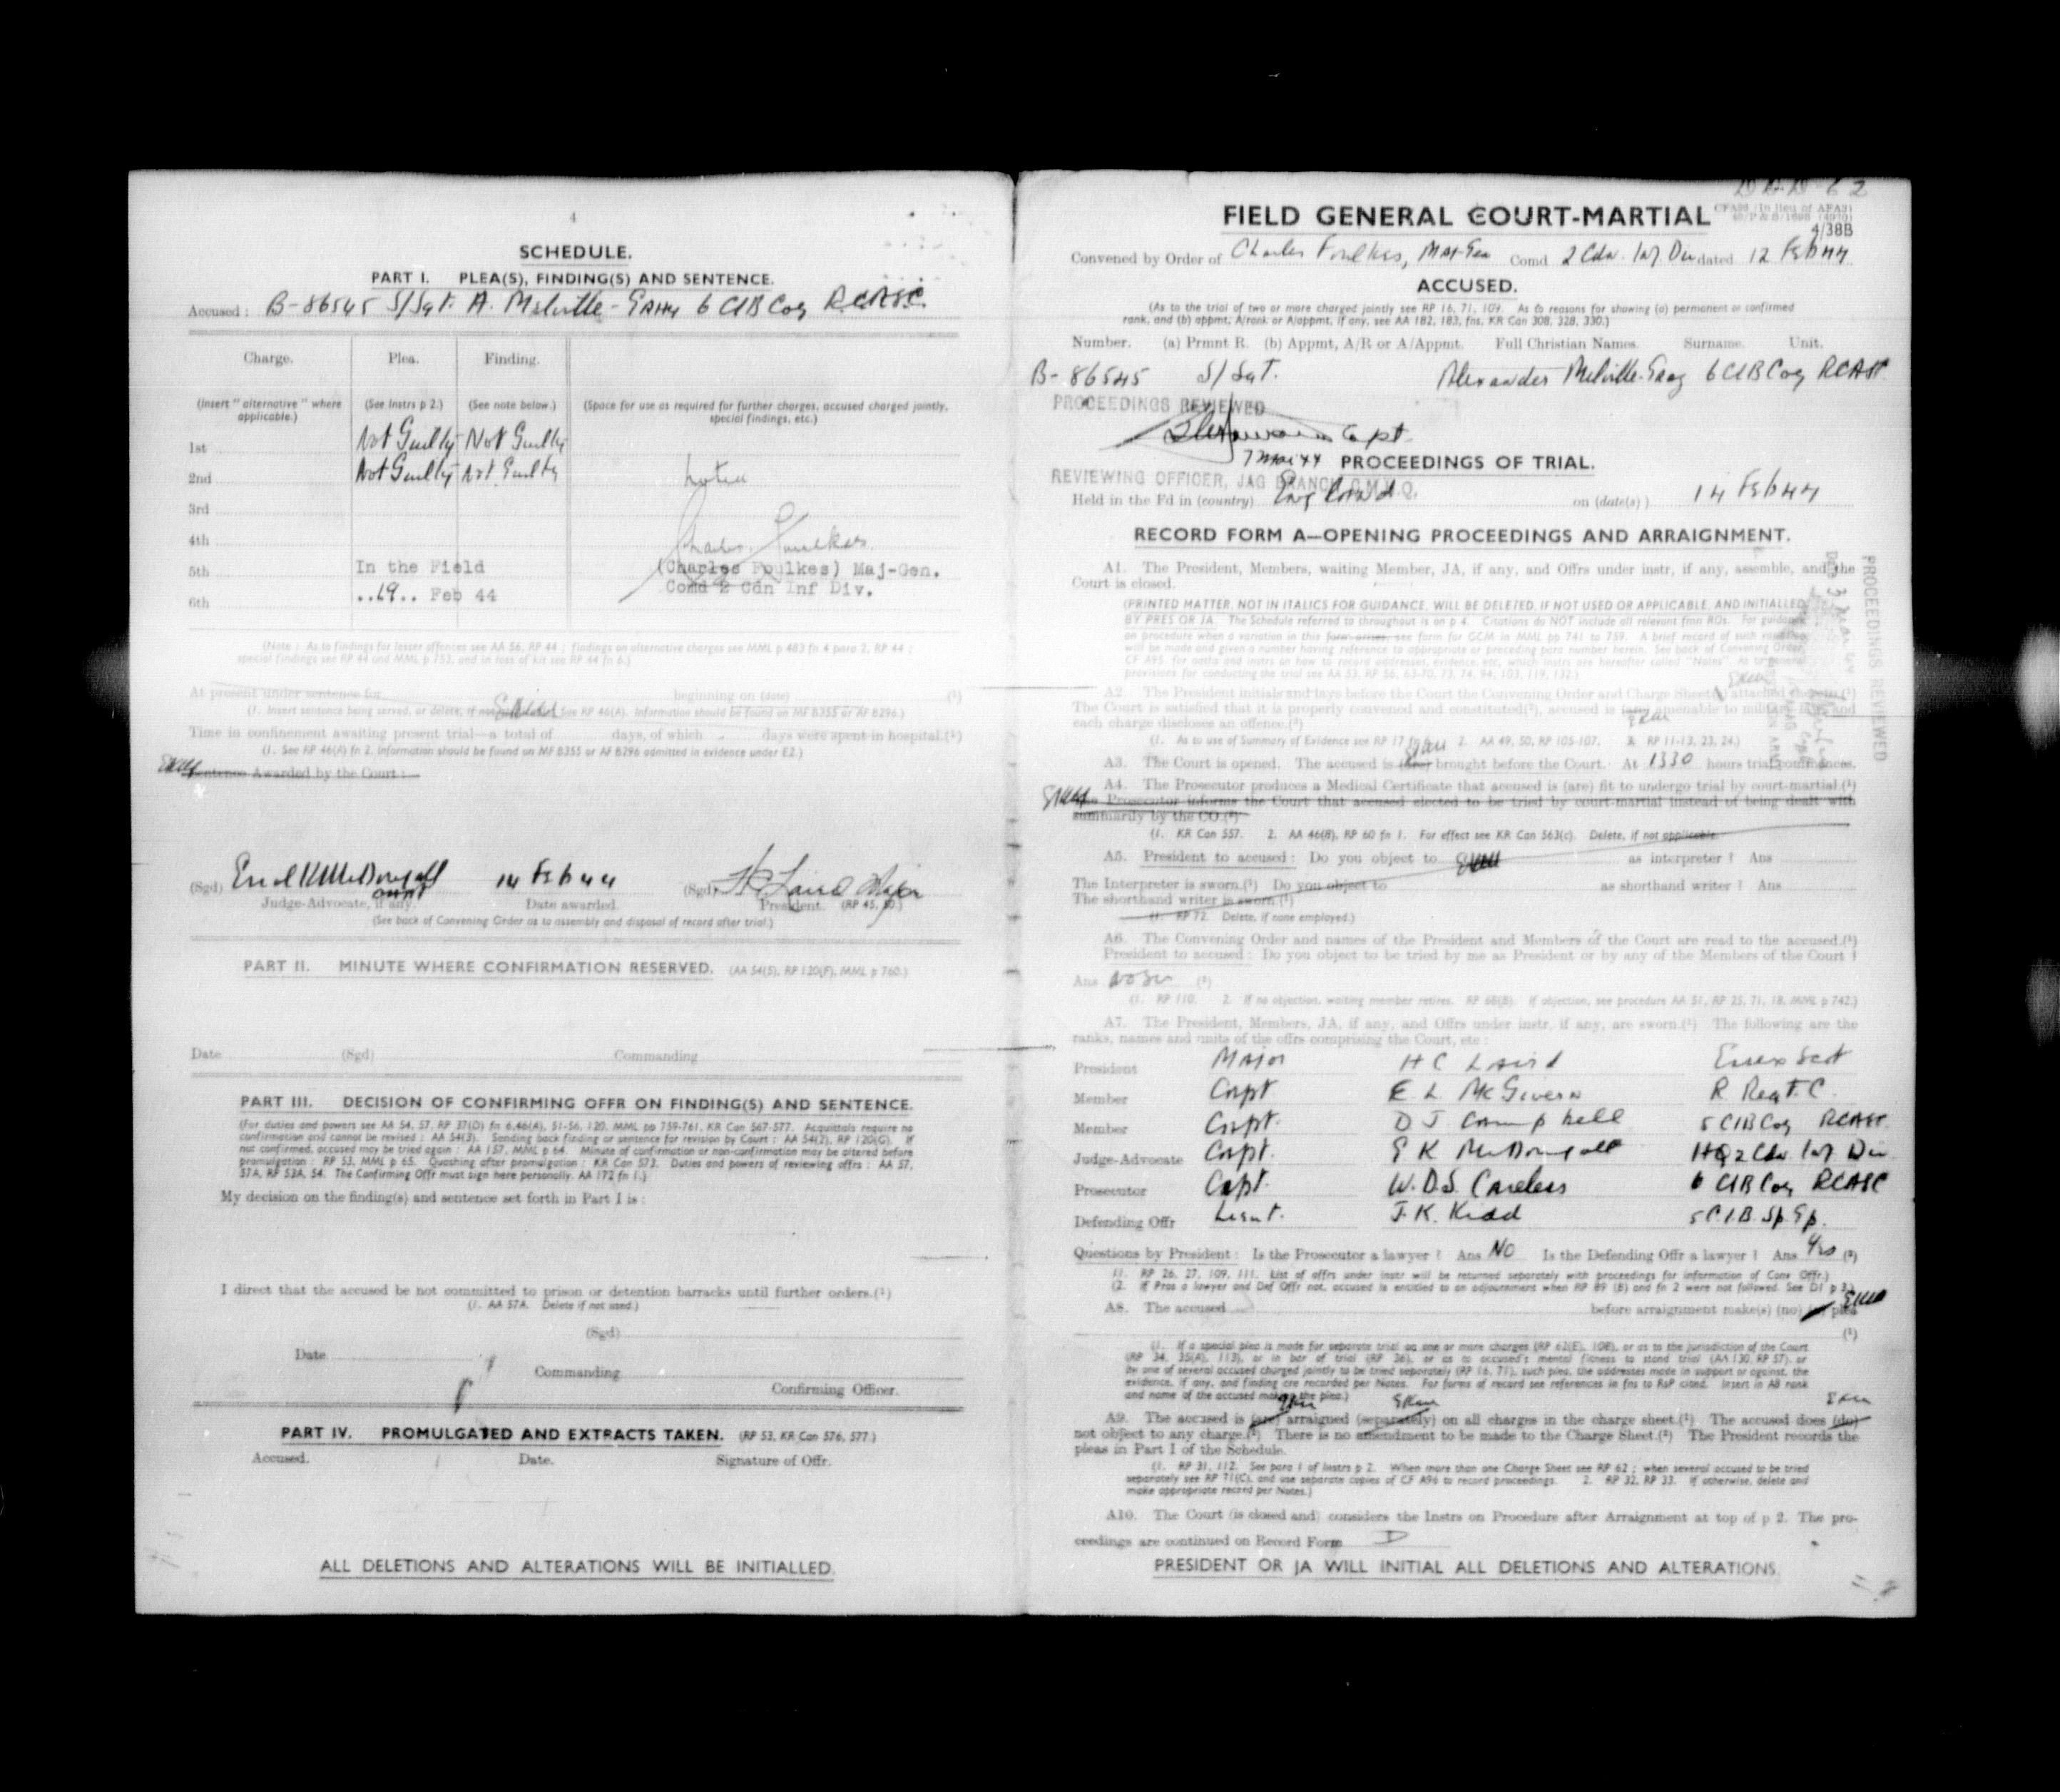 4
SCHEDULE.
PART I. PLEA(S), FINDING(S) AND SENTENCE.
Accused : B-86545 S/Sgt. A. Melville-Gray 6 CIB Coy RCASC
Charge. Plea. Finding.
(Insert "alternative" where applicable.) (See Instrs p 2.) (See note below.) (Space for use as required for further charges, accused charged jointly, special findings, etc.)
1st Not Guilty Not Guilty
2nd Not Guilty Not Guilty Noted
3rd
4th Charles Foulkes
5th In the Field (Charles Foulkes) Maj-Gen.
6th ..19.. Feb 44 Comd 2 Cdn Inf Div.
(Note : As to findings for lesser offences see AA 56, RP 44 ; findings on alternative charges see MML p 483 fn 4 para 2, RP 44 ;
special findings see RP 44 and MML p 753, and in loss of kit see RP 44 fn 6.)
At present under sentence for beginning on (date) (¹)
(1. Insert sentence being served, or delete, if not applicable. See RP 46(A). Information should be found on MF B355 or AF B296.)
Time in confinement awaiting present trial—a total of days, of which days were spent in hospital.(¹)
(1. See RP 46(A) fn 2. Information should be found on MF B355 or AF B296 admitted in evidence under E2.)
Sentence Awarded by the Court :
(Sgd) Errol K McDougall Capt 14 Feb 44 (Sgd) H C Laird Major
Judge-Advocate, if any. Date awarded. President. (RP 45, 50.)
(See back of Convening Order as to assembly and disposal of record after trial.)
PART II. MINUTE WHERE CONFIRMATION RESERVED. (AA 54(5), RP 120(F), MML p 760.)
Date (Sgd) Commanding
PART III. DECISION OF CONFIRMING OFFR ON FINDING(S) AND SENTENCE.
(For duties and powers see AA 54, 57, RP 37(D) fn 6,46(A), 51-56, 120, MML pp 759-761, KR Can 567-577. Acquittals require no
confirmation and cannot be revised : AA 54(3). Sending back finding or sentence for revision by Court : AA 54(2), RP 120(G). If
not confirmed, accused may be tried again : AA 157, MML p 64. Minute of confirmation or non-confirmation may be altered before
promulgation : RP 53, MML p 65. Quashing after promulgation : KR Can 573. Duties and powers of reviewing offrs : AA 57,
57A, RP 53A, 54. The Confirming Offr must sign here personally. AA 172 fn 1.)
My decision on the finding(s) and sentence set forth in Part I is :
I direct that the accused be not committed to prison or detention barracks until further orders.(¹)
(1. AA 57A. Delete if not used.)
(Sgd)
Date
Commanding
Confirming Officer.
PART IV. PROMULGATED AND EXTRACTS TAKEN. (RP 53, KR Can 576, 577.)
Accused. Date. Signature of Offr.
ALL DELETIONS AND ALTERATIONS WILL BE INITIALLED.
FIELD GENERAL COURT-MARTIAL
CFA96 (In lieu of AFA3)
4/38B
Convened by Order of Charles Foulkes, Maj-Gen Comd 2 Cdn Inf Div dated 12 Feb 44
ACCUSED.
(As to the trial of two or more charged jointly see RP 16, 71, 109. As to reasons for showing (a) permanent or confirmed
rank, and (b) appmt, A/rank or A/appmt, if any, see AA 182, 183, fns, KR Can 308, 328, 330.)
Number. (a) Prmnt R. (b) Appmt, A/R or A/Appmt. Full Christian Names. Surname. Unit.
B-86545 S/Sgt. Alexander Melville-Gray 6 CIB Coy RCASC
PROCEEDINGS REVIEWED
Capt.
7 Mar 44 PROCEEDINGS OF TRIAL.
REVIEWING OFFICER, JAG BRANCH, C.M.H.Q.
Held in the Fd in (country) England on (date(s)) 14 Feb 44
RECORD FORM A—OPENING PROCEEDINGS AND ARRAIGNMENT.
PROCEEDINGS REVIEWED
A1. The President, Members, waiting Member, JA, if any, and Offrs under instr, if any, assemble, and the
Court is closed.
(PRINTED MATTER, NOT IN ITALICS FOR GUIDANCE, WILL BE DELETED, IF NOT USED OR APPLICABLE, AND INITIALLED
BY PRES OR JA. The Schedule referred to throughout is on p 4. Citations do NOT include all relevant finn ROs. For guidance
on procedure when a variation in this form arises, see form for GCM in MML pp 741 to 759. A brief record of such variation
will be made and given a number having reference to appropriate or preceding para number herein. See back of Convening Order,
CF A95, for oaths and instrs on how to record addresses, evidence, etc, which instrs are hereafter called "Notes". As to general
provisions for conducting the trial see AA 53, RP 56, 63-70, 73, 74, 94, 103, 119, 132.)
A2. The President initials and lays before the Court the Convening Order and Charge Sheet(s) attached
The Court is satisfied that it is properly convened and constituted(²), accused is (are) amenable to military law and
each charge discloses an offence.(³)
(1. As to use of Summary of Evidence see RP 17 fn 6. 2. AA 49, 50, RP 105-107. 3. RP 11-13, 23, 24.)
A3. The Court is opened. The accused is (are) brought before the Court. At 1330 hours trial commences.
A4. The Prosecutor produces a Medical Certificate that accused is (are) fit to undergo trial by court-martial.(¹)
The Prosecutor informs the Court that accused elected to be tried by court-martial instead of being dealt with
summarily by the CO.(²)
(1. KR Can 557. 2. AA 46(8), RP 60 fn 1. For effect see KR Can 563(c). Delete, if not applicable.
A5. President to accused : Do you object to as interpreter ? Ans
The Interpreter is sworn.(¹) Do you object to as shorthand writer ? Ans
The shorthand writer is sworn.(¹)
(1. RP 72. Delete, if none employed.)
A6. The Convening Order and names of the President and Members of the Court are read to the accused.(¹)
President to accused : Do you object to be tried by me as President or by any of the Members of the Court ?
Ans No Sir (²)
(1. RP 110. 2. If no objection, waiting member retires. RP 68(B). If objection, see procedure AA 51, RP 25, 71, 18, MML p 742.)
A7. The President, Members, JA, if any, and Offrs under instr, if any, are sworn.(¹) The following are the
ranks, names and units of the offrs comprising the Court, etc :
President Major H C Laird Essex Scot
Member Capt E L McGivern R Regt. C.
Member Capt. D J Campbell 5 CIB Coy RCASC
Judge-Advocate Capt. E K McDougall HQ 2 Cdn Inf Div
Prosecutor Capt. W.D.S. Careless 6 CIB Coy RCASC
Defending Offr Lieut. J.K. Kidd 5 C.I.B. Sp. Gp.
Questions by President : Is the Prosecutor a lawyer ? Ans No Is the Defending Offr a lawyer ? Ans Yes (²)
(1. RP 26, 27, 109, 111. List of offrs under instr will be returned separately with proceedings for information of Conv Offr.)
(2. If Pros a lawyer and Def Offr not, accused is entitled to an adjournment when RP 89 (B) and fn 2 were not followed. See D1 p 3.)
A8. The accused before arraignment make(s) (no) (a) plea
(¹)
(1. If a special plea is made for separate trial on one or more charges (RP 62(E), 108), or as to the jurisdiction of the Court
(RP 34, 35(A), 113), or in bar of trial (RP 36), or as to accused's mental fitness to stand trial (AA 130, RP 57), or
by one of several accused charged jointly to be tried separately (RP 16, 71), such plea, the addresses made in support or against, the
evidence, if any, and finding are recorded per Notes. For forms of record see references in fns to R&P cited. Insert in A8 rank
and name of the accused making the plea.)
A9. The accused is (are) arraigned (separately) on all charges in the charge sheet.(¹) The accused does (do)
not object to any charge.(²) There is no amendment to be made to the Charge Sheet.(²) The President records the
pleas in Part I of the Schedule.
(1. RP 31, 112. See para 1 of Instrs p 2. When more than one Charge Sheet see RP 62 ; when several accused to be tried
separately see RP 71(C), and use separate copies of CF A96 to record proceedings. 2. RP 32, RP 33. If otherwise, delete and
make appropriate record per Notes.)
A10. The Court (is closed and) considers the Instrs on Procedure after Arraignment at top of p 2. The pro-
ceedings are continued on Record Form D
PRESIDENT OR JA WILL INITIAL ALL DELETIONS AND ALTERATIONS.